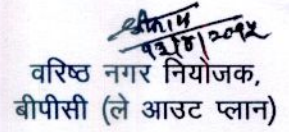 १३/४/२०१५
वरिष्ठ नगर नियोजक,
बीपीसी (ले आउट प्लान)